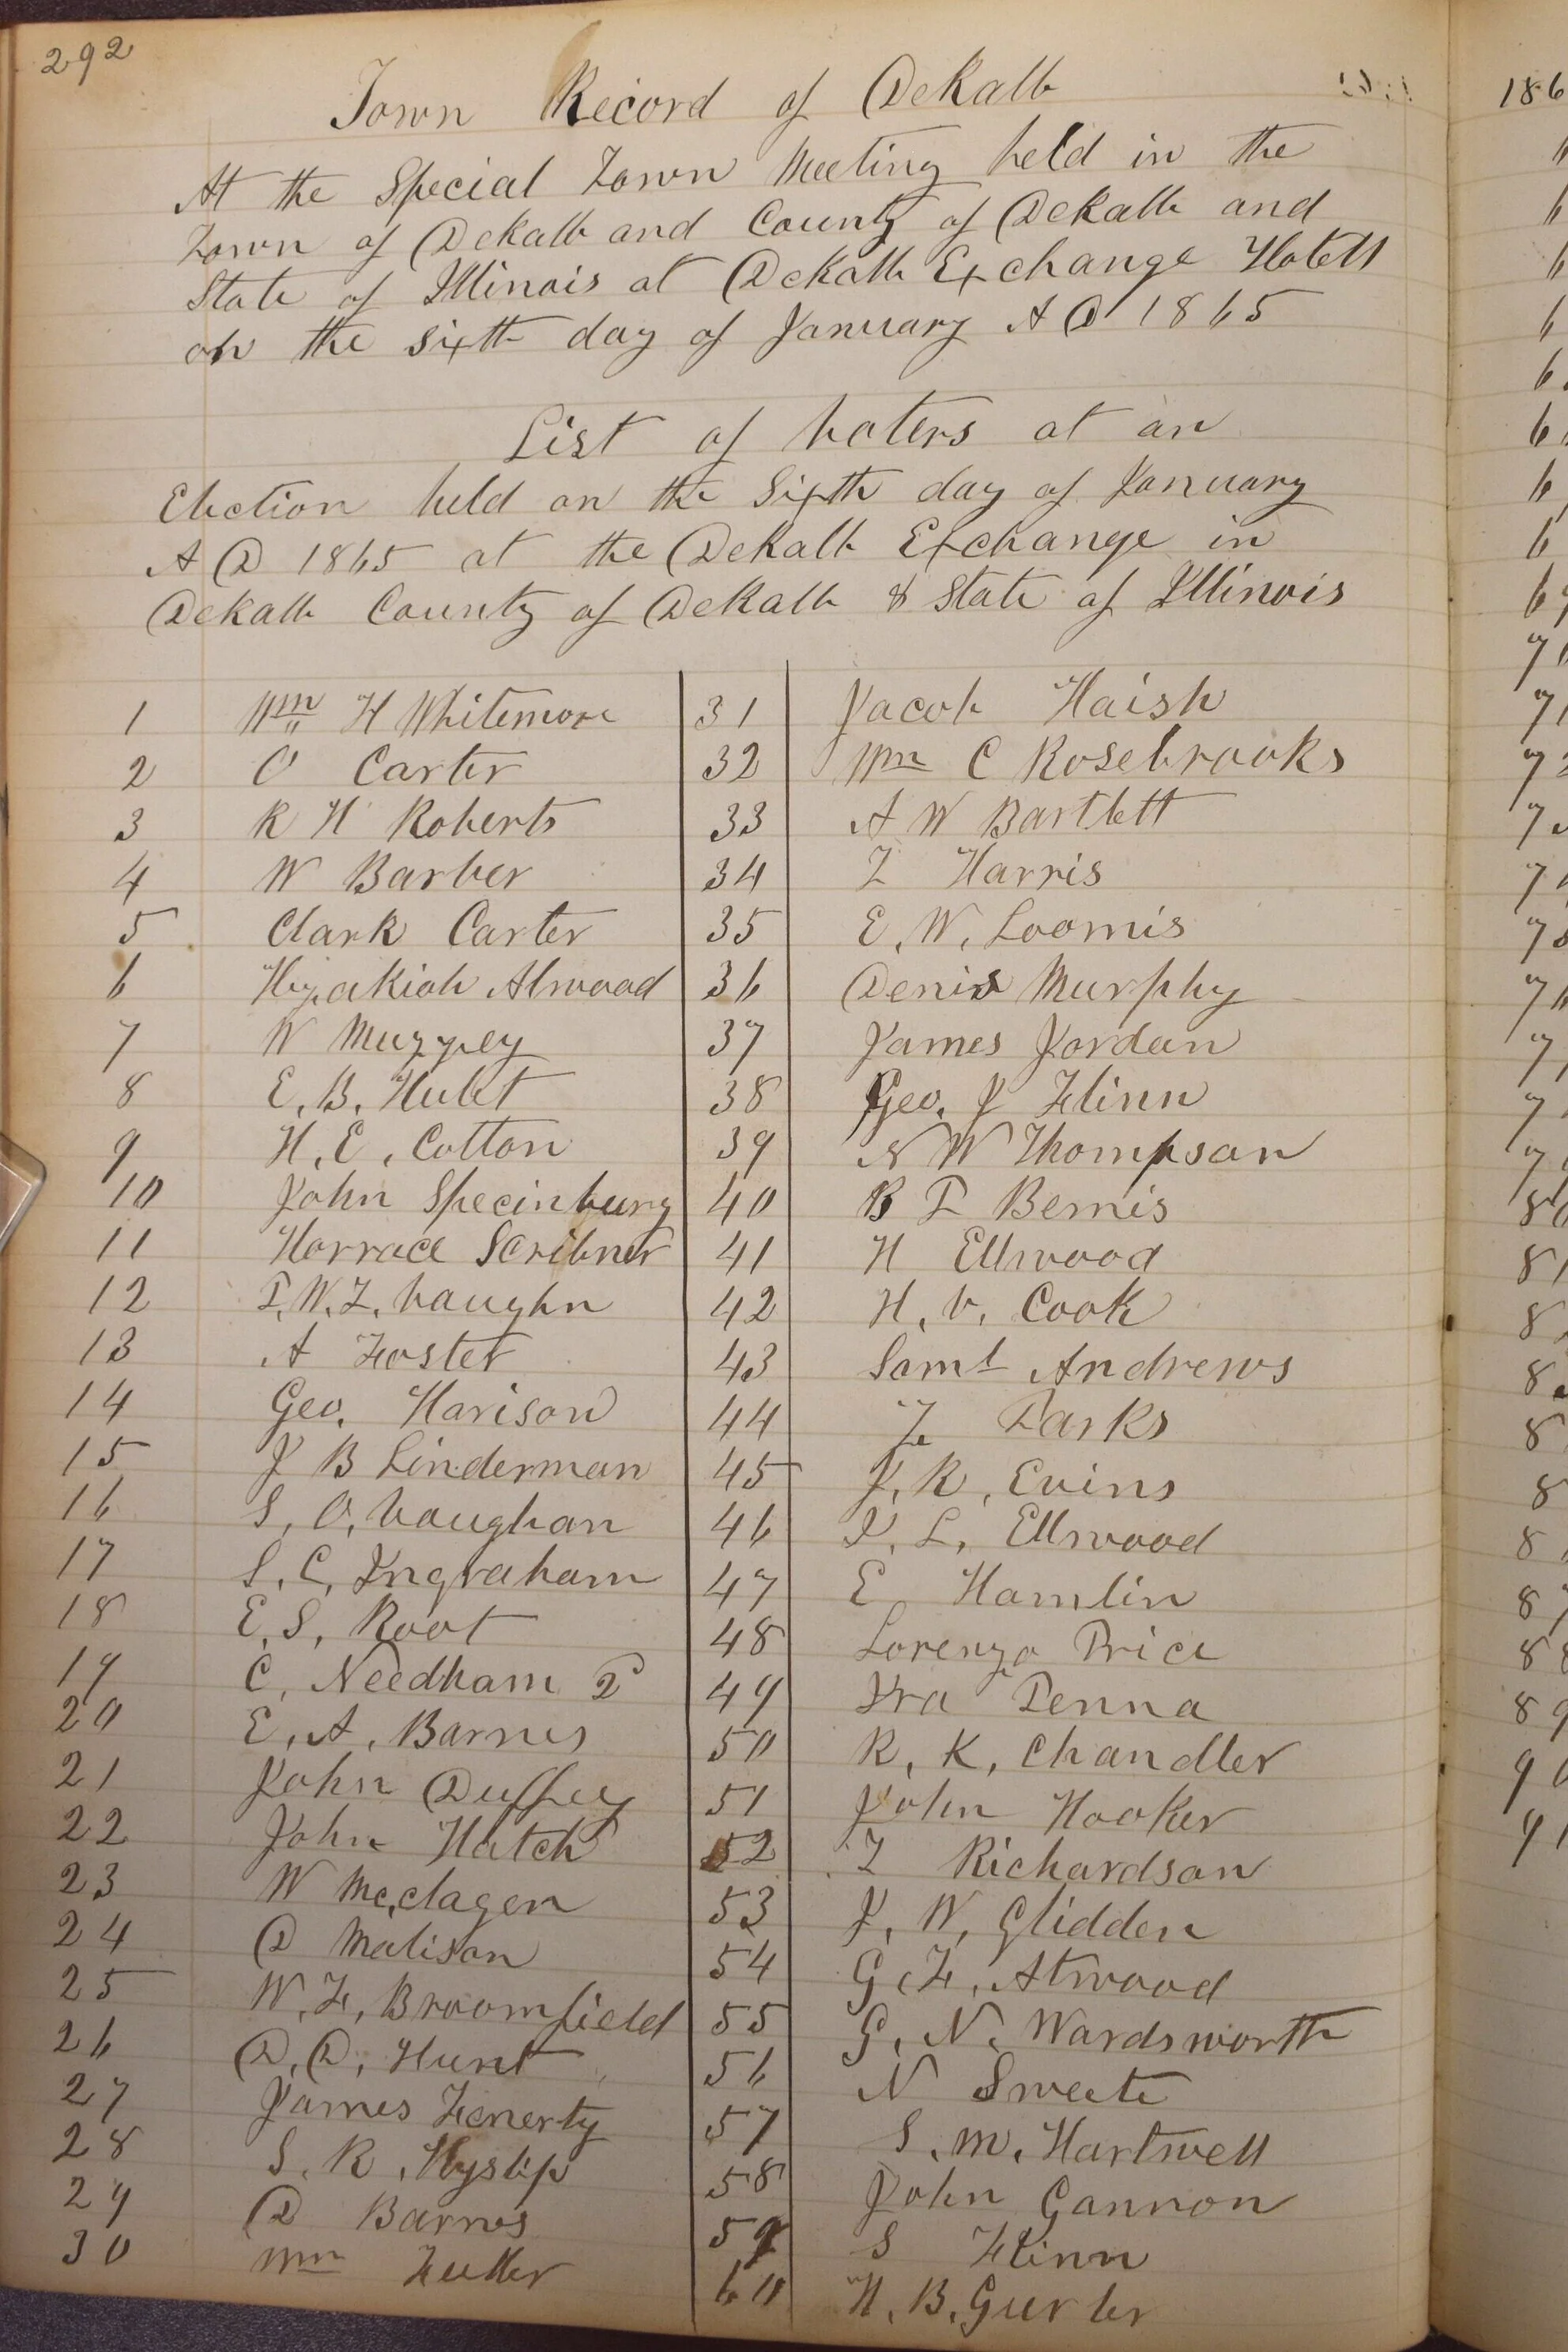 292
Town Record of Dekalb
At the Special Town Meeting held in the
Town of Dekalb and County of Dekalb and
State of Illinois at Dekalb Exchange Hotell
on the sixth day of January A D 1865
List of voters at an
Election held on the Sixth day of January
A D 1865 at the Dekalb Exchange in
Dekalb County of Dekalb & State of Illinois
1 Wm H Whitemore 31 Jacob Haish
2 O Carter 32 Wm C Rosebrooks
3 R H Roberts 33 A W Bartlett
4 W Barber 34 T Harris
5 Clark Carter 35 E. W. Loomis
6 Hezakiah Atwood 36 Denis Murphy
7 W Muzzey 37 James Jordan
8 E. B. Hulet 38 Geo. J Flinn
9 H. E. Cotton 39 N W Thompson
10 John Specinburg 40 B P Bemis
11 Horrace Scribner 41 H Ellwood
12 P. W. T. Vaughn 42 H. V. Cook
13 A Foster 43 Saml Andrews
14 Geo. Harison 44 Parks
15 J B Linderman 45 J. R. Evins
16 S. O. Vaughan 46 I. L. Ellwood
17 S. C. Ingraham 47 E Hamlin
18 E. S. Root 48 Lorenzo Price
19 C. Needham 2 49 Ira Penna
20 E. A. Barnes 50 R. K. Chandler
21 John Duffey 51 John Hooker
22 John Hatch 52 T Richardson
23 W Mc.clagen 53 J. W. Glidden
24 D Matison 54 G. F. Atwood
25 W. F. Broomfield 55 G. N. Wardsworth
26 D. D. Hunt 56 N Sweete
27 James Fenerty 57 S. M. Hartwell
28 S. R. Hyslip 58 John Gannon
29 D Barnes 59 S Flinn
30 Wm Fuller 60 H. B. Gurler